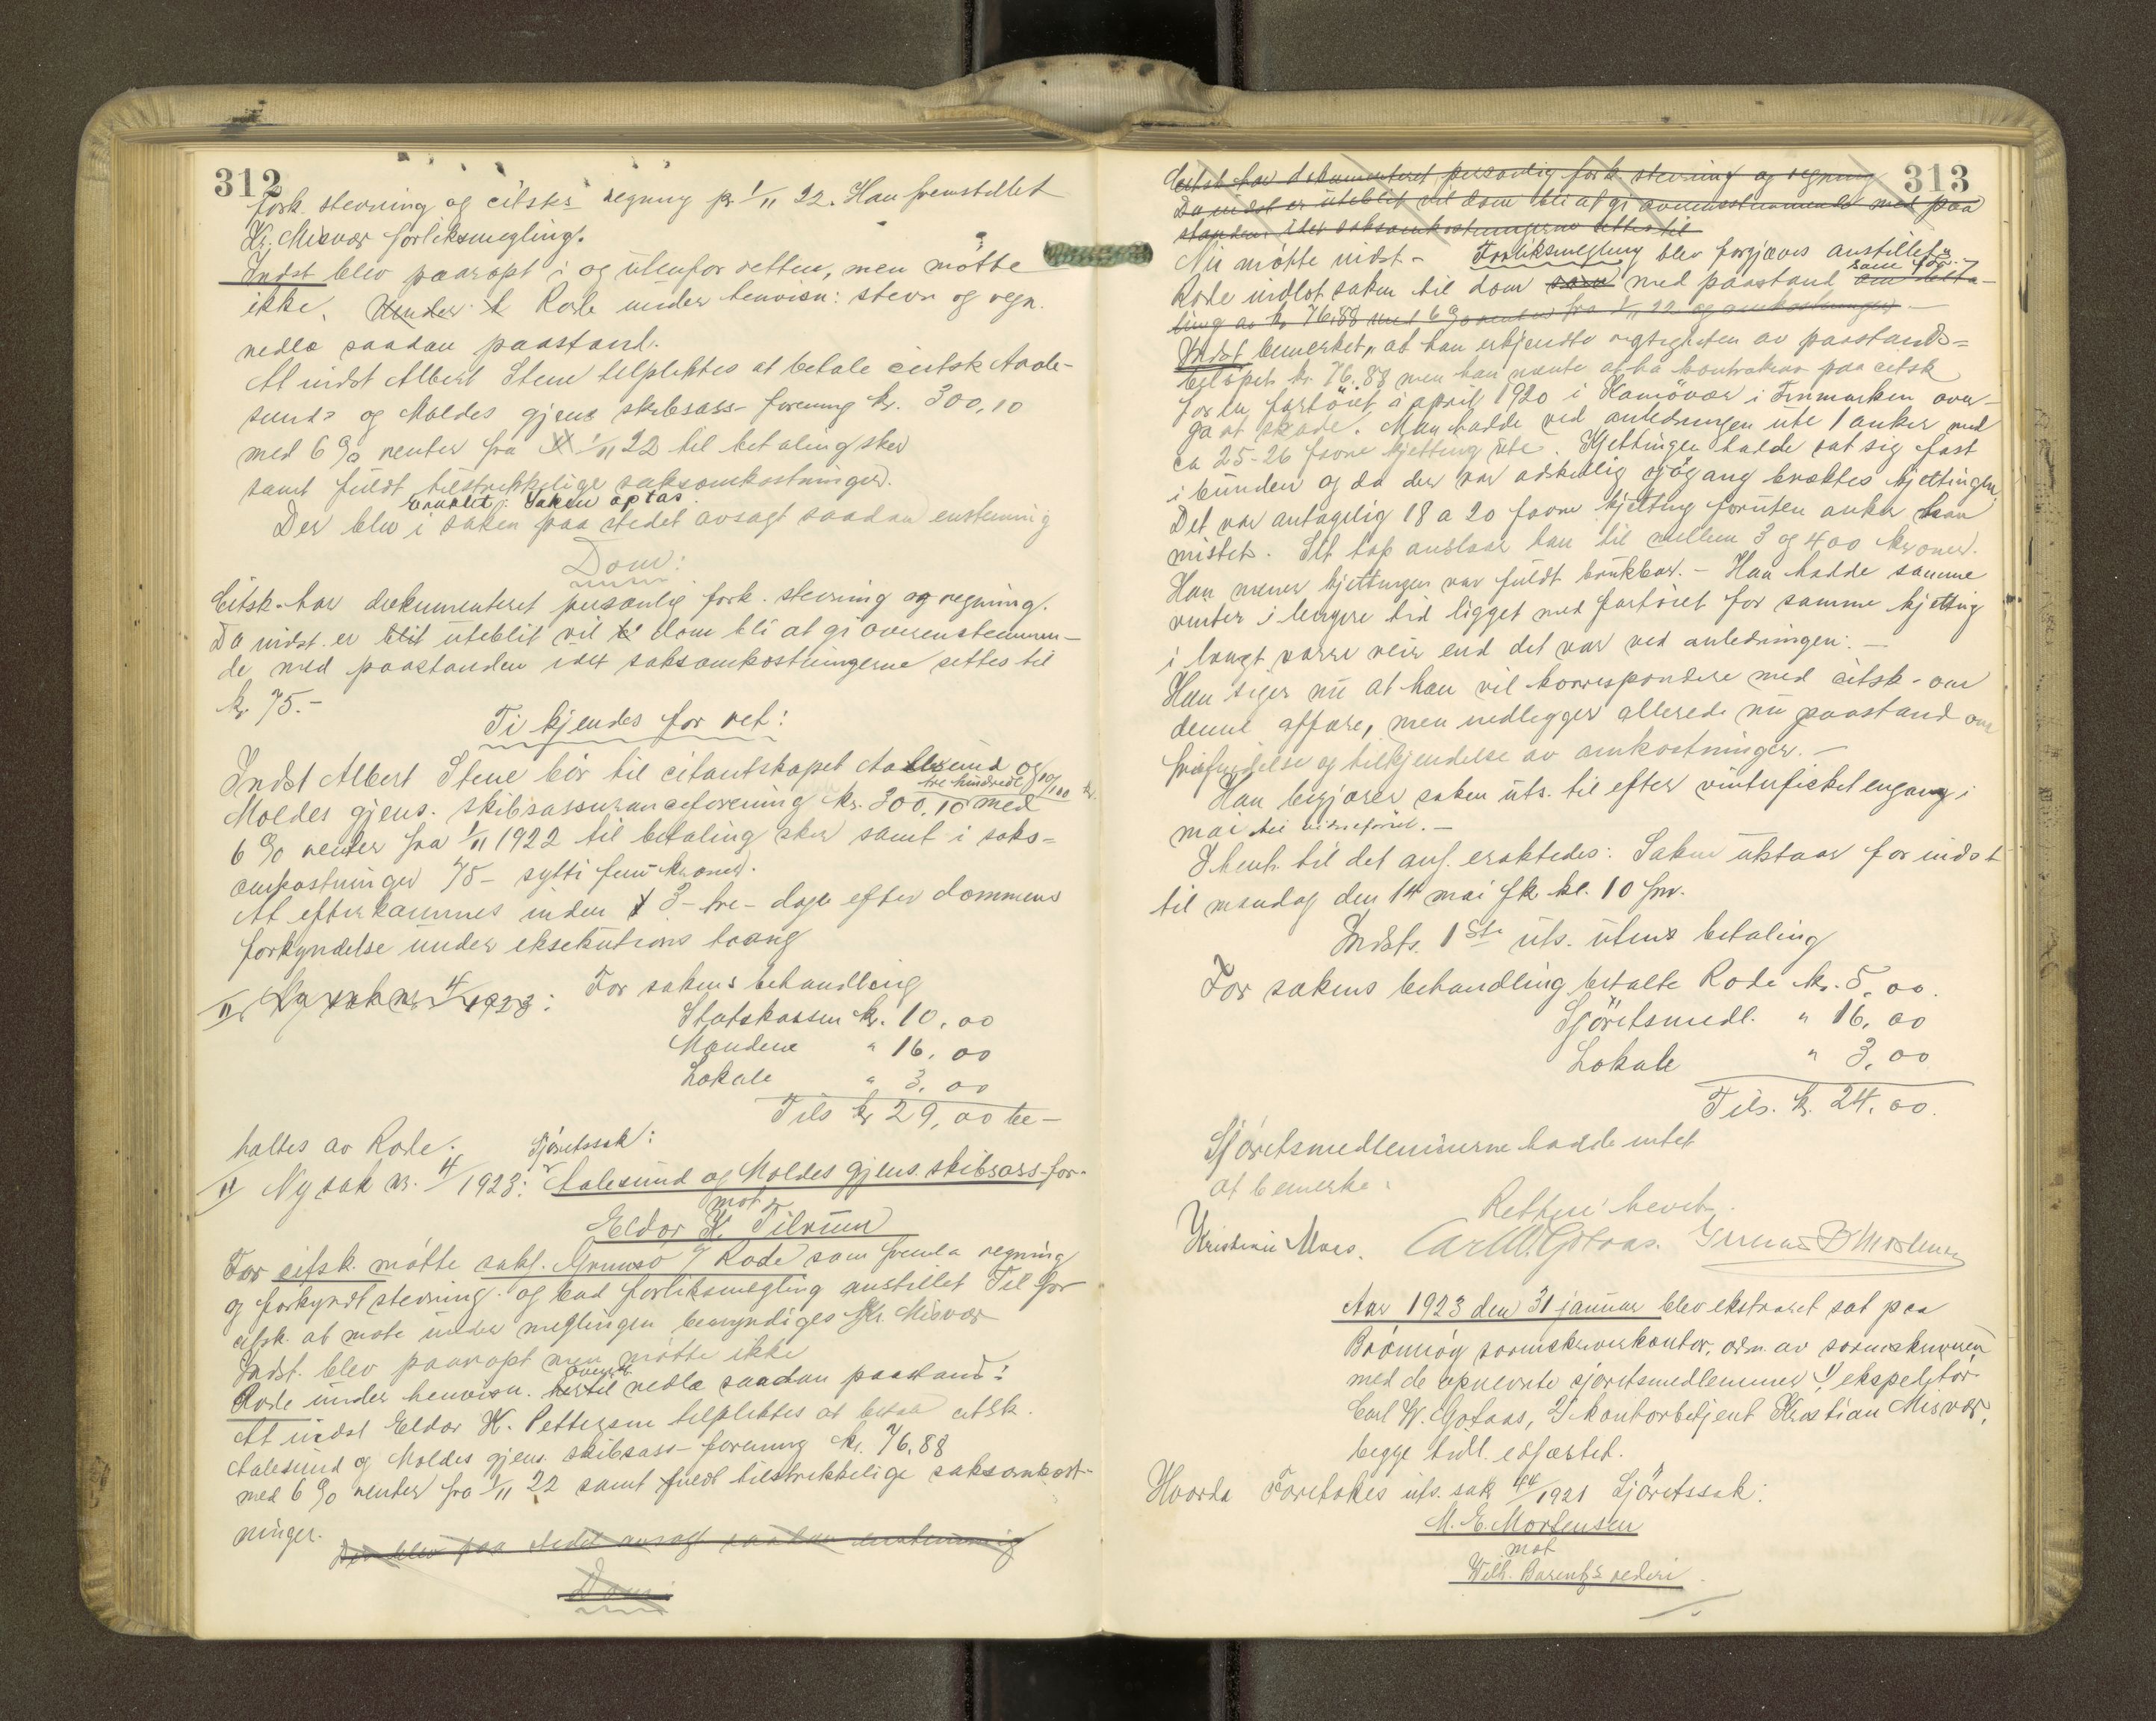 312
fork. stevning og citsks regning pr 1/11 22. Han fremstillet
Kr. Misvær forliksmegling.
Indst blev paaropt i og utenfor retten, men møtte
ikke. Under h Rode under henvisn: stevn og regn.
nedla saadan paastand.
At indst Albert Stene tilpliktes at betale citsk Aale-
sunds og Moldes gjens skibsass- forening kr. 300,10
med 6 % renter fra 1/11 22 til betaling sker
samt fuldt tilstrekkelige saksomkostninger.
Eraktet: Saken optas
Der blev i saken paa stedet avsagt saadan enstemmig
Dom:
Citsk. har dokumenteret personlig fork. stevning og regning.
Da indst. er blit uteblit vil dom bli at gi overenstemmen-
de med paastanden idet saksomkostningerne settes til
kr 75.-
Ti kjendes for ret:
Indst Albert Stene bør til citantskapet Aalesund og
tre hundrede 10/100 kr.
Moldes gjens. skibsassuranceforening kr. 300,10 med
6 % renter fra 1/11 1922 til betaling sker samt i saks=
omkostninger 75- sytti fem kroner.
At efterkommes inden 3- tre- dage efter dommens
forkyndelse under eksekutions tvang
II Ny sak nr 4/1923: For sakens behandling
Statskassen kr. 10,00
Mændene " 16,00
Lokale " 3,00
Tils kr 29,00 be-
taltes av Rode. Sjøretssak:
II Ny sak nr. 4/1923: Aalesund og Moldes gjens. skibsass-for-
mot
Eldor H. Tilrum
For citsk. møtte sakf. Grunnsø o/ Rode som fremla regning
og forkyndt stevning og bad forliksmegling anstillet Til for
citsk. at møte under meglingen bemyndiges Kr. Misvær
Indst. blev paaropt men møtte ikke
Rode under henvisn. hertil nedla saadan paastand:
At indst Eldor H. Pettersen tilpliktes at betale citsk.
Aalesund og Moldes gjens. skibsass- forening kr. 76,88
med 6 % renter fra 1/11 22 samt fuldt tilstrekkelige saksomkost-
ninger.
Der blev paa stedet avsagt saadan enstemmig
Dom:
313
Citsk har dokumenteret personlig fork. stevning og regning
Da indst er uteblit vil dom bli at gi overensstemmende med paa
standen idet saksomkostningerne settes til
Nu møtte indst - Forliksmegling blev forgjæves anstillet.
Rode indlot saken til dom med paastand som før. om beta-
ling av kr. 76,88 med 6 % renter fra 1/11 22 og omkostninger
Indst bemerket, at han erkjendte rigtigheten av paastands=
beløpet kr. 76.88 men han mente at ha kontrakrav paa citsk
for en fartøiet i april 1920 i Hamøvær i Finmarken over-
gaat skade. Man hadde ved anledningen ute 1 anker med
ca 25-26 favne kjetting ute. Kjettingen hadde sat sig fast
i bunden og da der var adskillig sjøgang bræktes kjettingen.
Det var antagelig 18 a 20 favne kjetting foruten anker han
mistet. Sit tap anslaar han til mellem 3 og 400 kroner.
Han mener kjettingen var fuldt brukbar. - Han hadde samme
vinter i lengere tid ligget med fartøiet for samme kjetting
i langt værre veir end det var ved anledningen. -
Han siger nu at han vil korrespondere med citsk. om
denne affære, men nedlegger allerede nu paastand om
frifindelse og tilkjendelse av omkostninger. -
Han begjærer saken uts. til efter vinterfisket engang i
mai til vidneførsl. -
I henh. til det anf. eraktedes: Saken utstaar for indst
til mandag den 14 mai fk kl. 10 fm.
Indsts. 1ste uts. utens betaling
For sakens behandling betalte Rode kr. 5,00.
Sjøretsmedl. " 16,00
Lokale " 3,00
Tils. kr. 24,00.
Sjøretsmedlemmerne hadde intet
at bemerke.
Retten hevet.
Kristian Misv. Carl W. Gofaas.
Aar 1923 den 31 januar blev ekstraret sat paa
Brønnøy sorenskriverkontor, adm. av sorenskriveren
med de opnevnte sjøretsmedlemmer 1) ekspeditør
Carl W. Gofaas, 2) kontorbetjent Kristian Misvær,
begge tidl. edfæstet.
Hvorda Foretokes uts. sak 44/1921 Sjøretssak:
M. E. Mortensen
mot
Wilh. Barents rederi